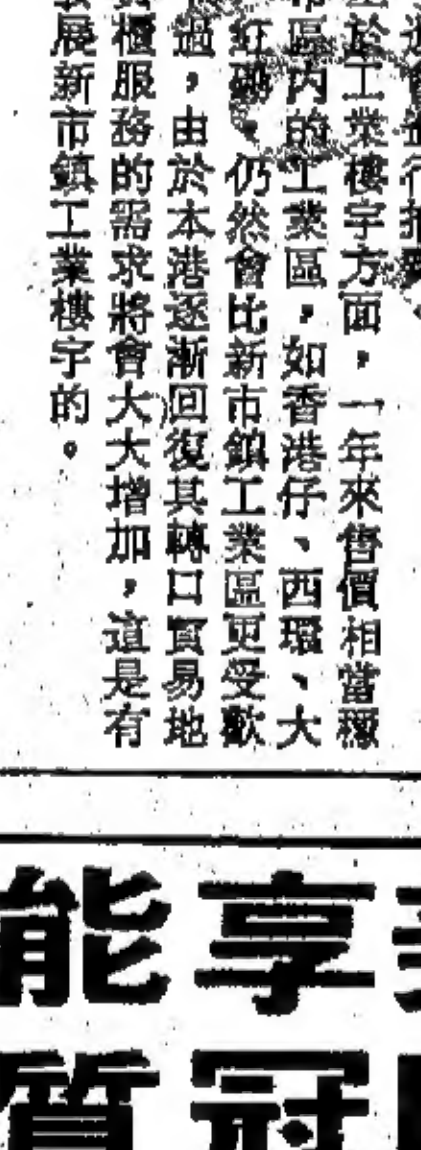 進會進行
於工業樓宇方面，一年來售價相當穩
市區內的工業區，如香港仔、西環、大
紅磡，仍然會比新市鎮工業區更受歡
過，由於本港逐漸回復其轉口貿易地
貨櫃服務的需求將會大大增加，這是有
發展新市鎮工業樓宇的。
享能
冠質